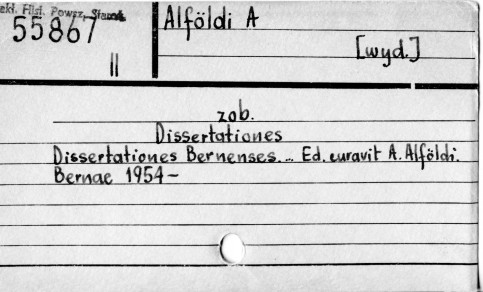 Zakł. Hist. Powsz. Staroż.
55867
II
Alföldi A
[wyd.]
zob.
Dissertationes
Dissertationes Bernenses... Ed. curavit A. Alföldi.
Bernae 1954-